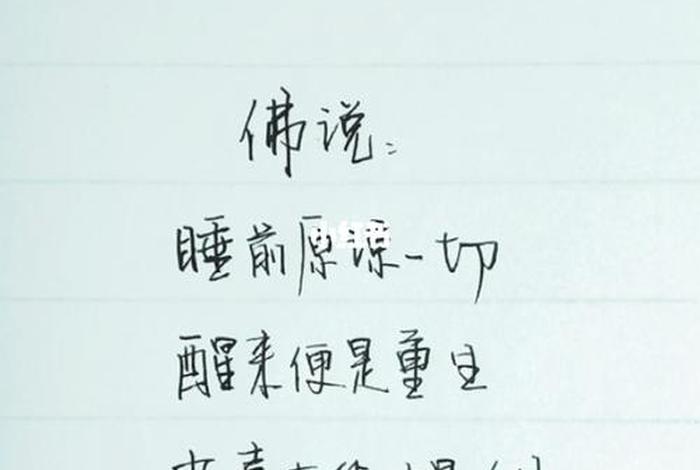 佛说:
睡前原谅一切
小红书
醒来便是重生